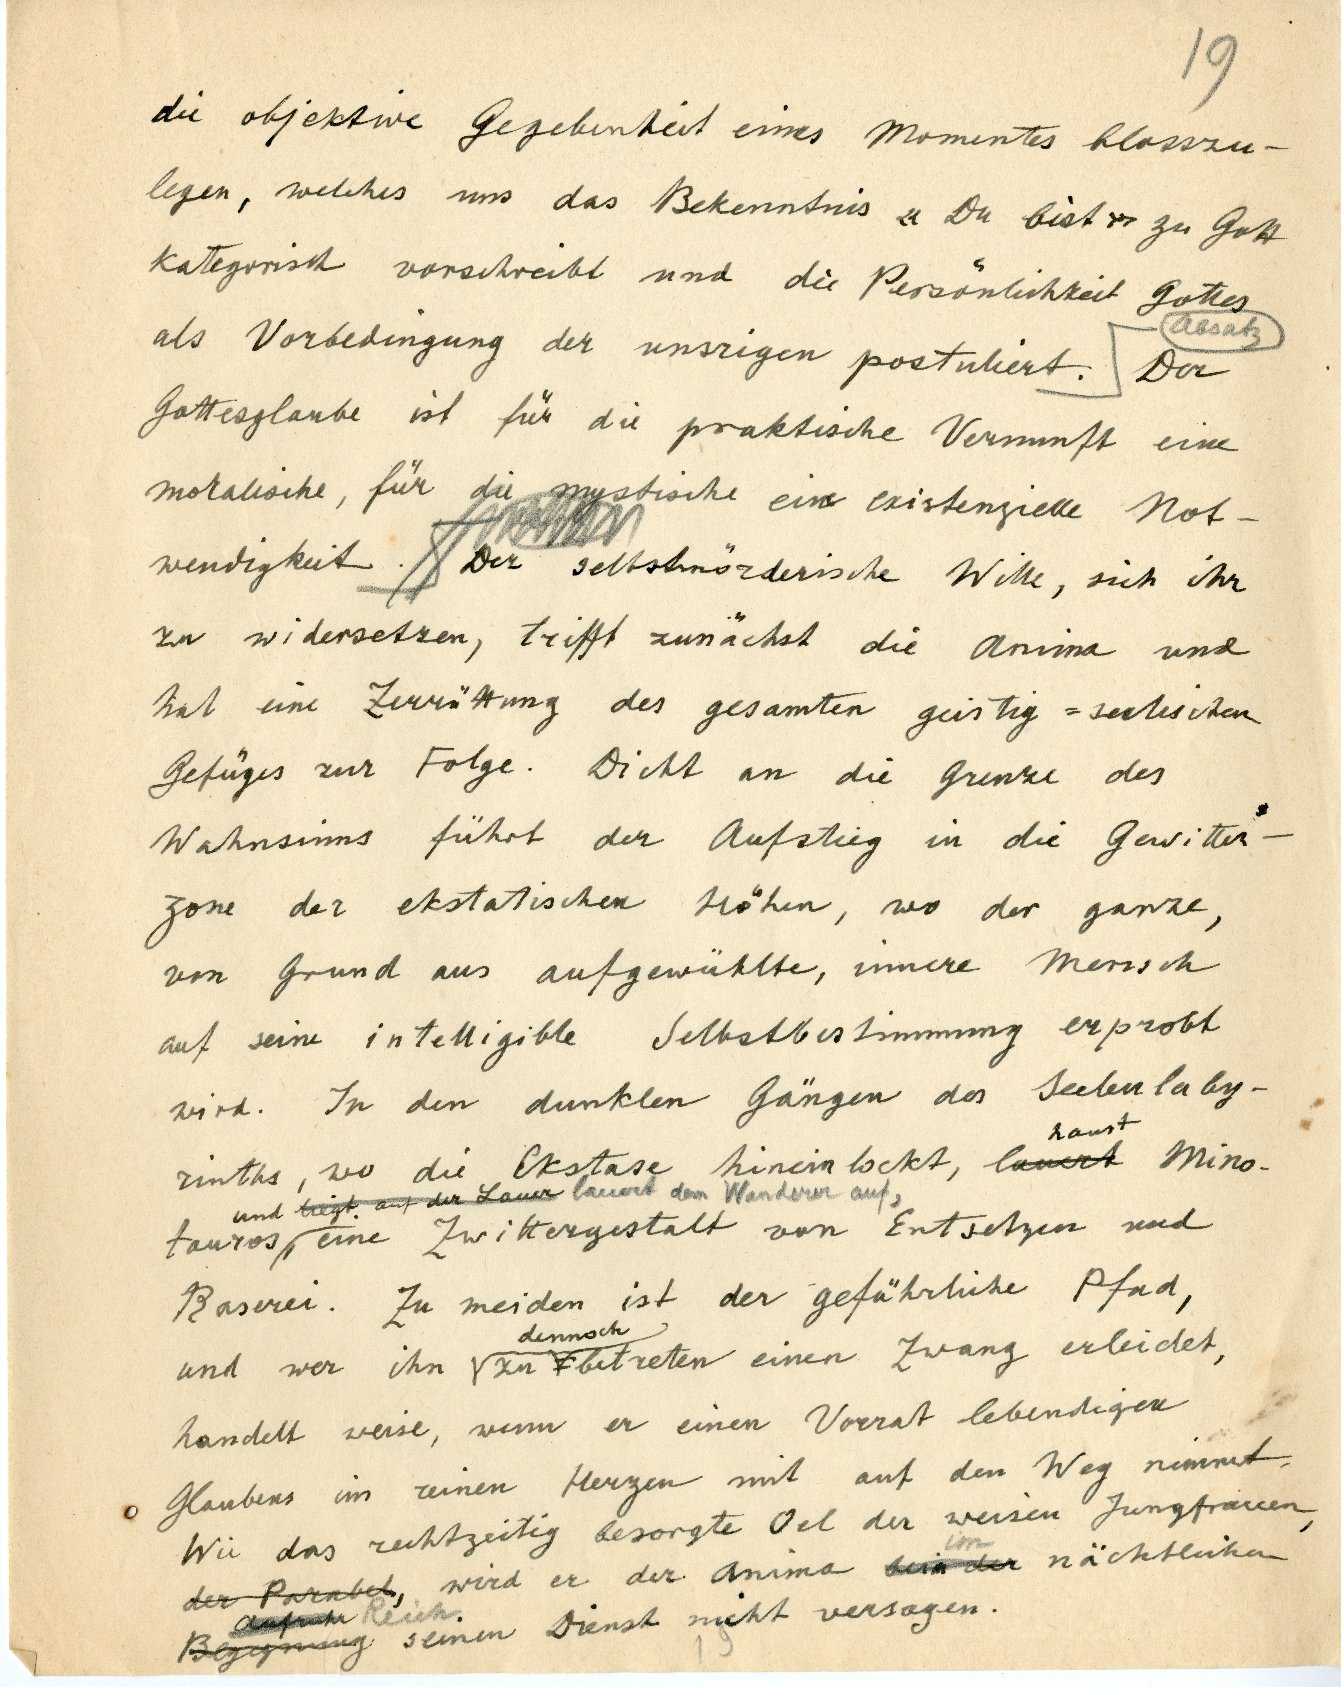 19
die objektive Gegebenheit eines Momentes blosszu-
legen, welches uns das Bekenntnis „Du bist" zu Gott
kategorisch vorschreibt und die Persönlichkeit Gottes
Absatz
als Vorbedingung der unsrigen postuliert. Der
Gottesglaube ist für die praktische Vernunft eine
moralische, für die mystische eine existenzielle Not-
wendigkeit. Der selbstmörderische Wille, sich ihr
zu widersetzen, trifft zunächst die Anima und
hat eine Zerrüttung des gesamten geistig=seelischen
Gefüges zur Folge. Dicht an die Grenze des
Wahnsinns führt der Aufstieg in die Gewitter-
zone der ekstatischen Höhen, wo der ganze,
von Grund aus aufgewühlte, innere Mensch
auf seine intelligible Selbstbestimmung erprobt
wird. In den dunklen Gängen des Seelenlaby-
haust
rinths, wo die Ekstase hineinlockt, lauert Mino-
und liegt auf der Lauer lauert dem Wanderer auf,
tauros, eine Zwittergestalt von Entsetzen und
Raserei. Zu meiden ist der gefährliche Pfad,
dennoch
und wer ihn zu betreten einen Zwang erleidet,
handelt weise, wenn er einen Vorrat lebendigen
Glaubens im reinen Herzen mit auf den Weg nimmt.
Wie das rechtzeitig besorgte Oel der weisen Jungfrauen,
im
der Parabel, wird er der Anima bei der nächtlichen
Reich
Begegnung seinen Dienst nicht versagen.
19